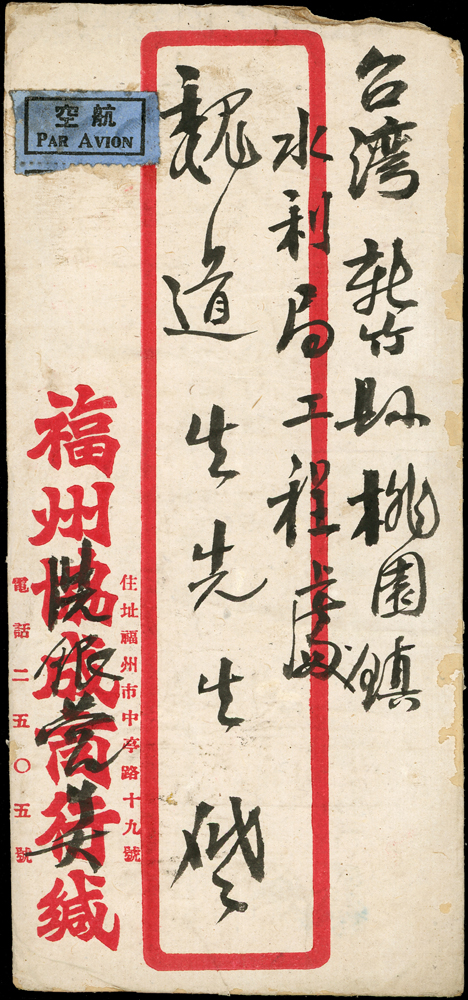 台湾新竹县桃園鎮
水利局工程處
魏道生先生
航空
PAR AVION
住址福州市中亭路十九號
福州
商行緘
電話二五〇五號